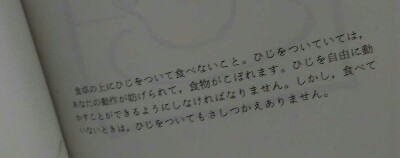 食卓の上にひじをついて食べないこと。ひじをついていては，
あなたの動作が妨げられて，食物がこぼれます。ひじを自由に動
かすことができるようにしなければなりません。しかし，食べて
いないときは，ひじをついてもさしつかえありません。